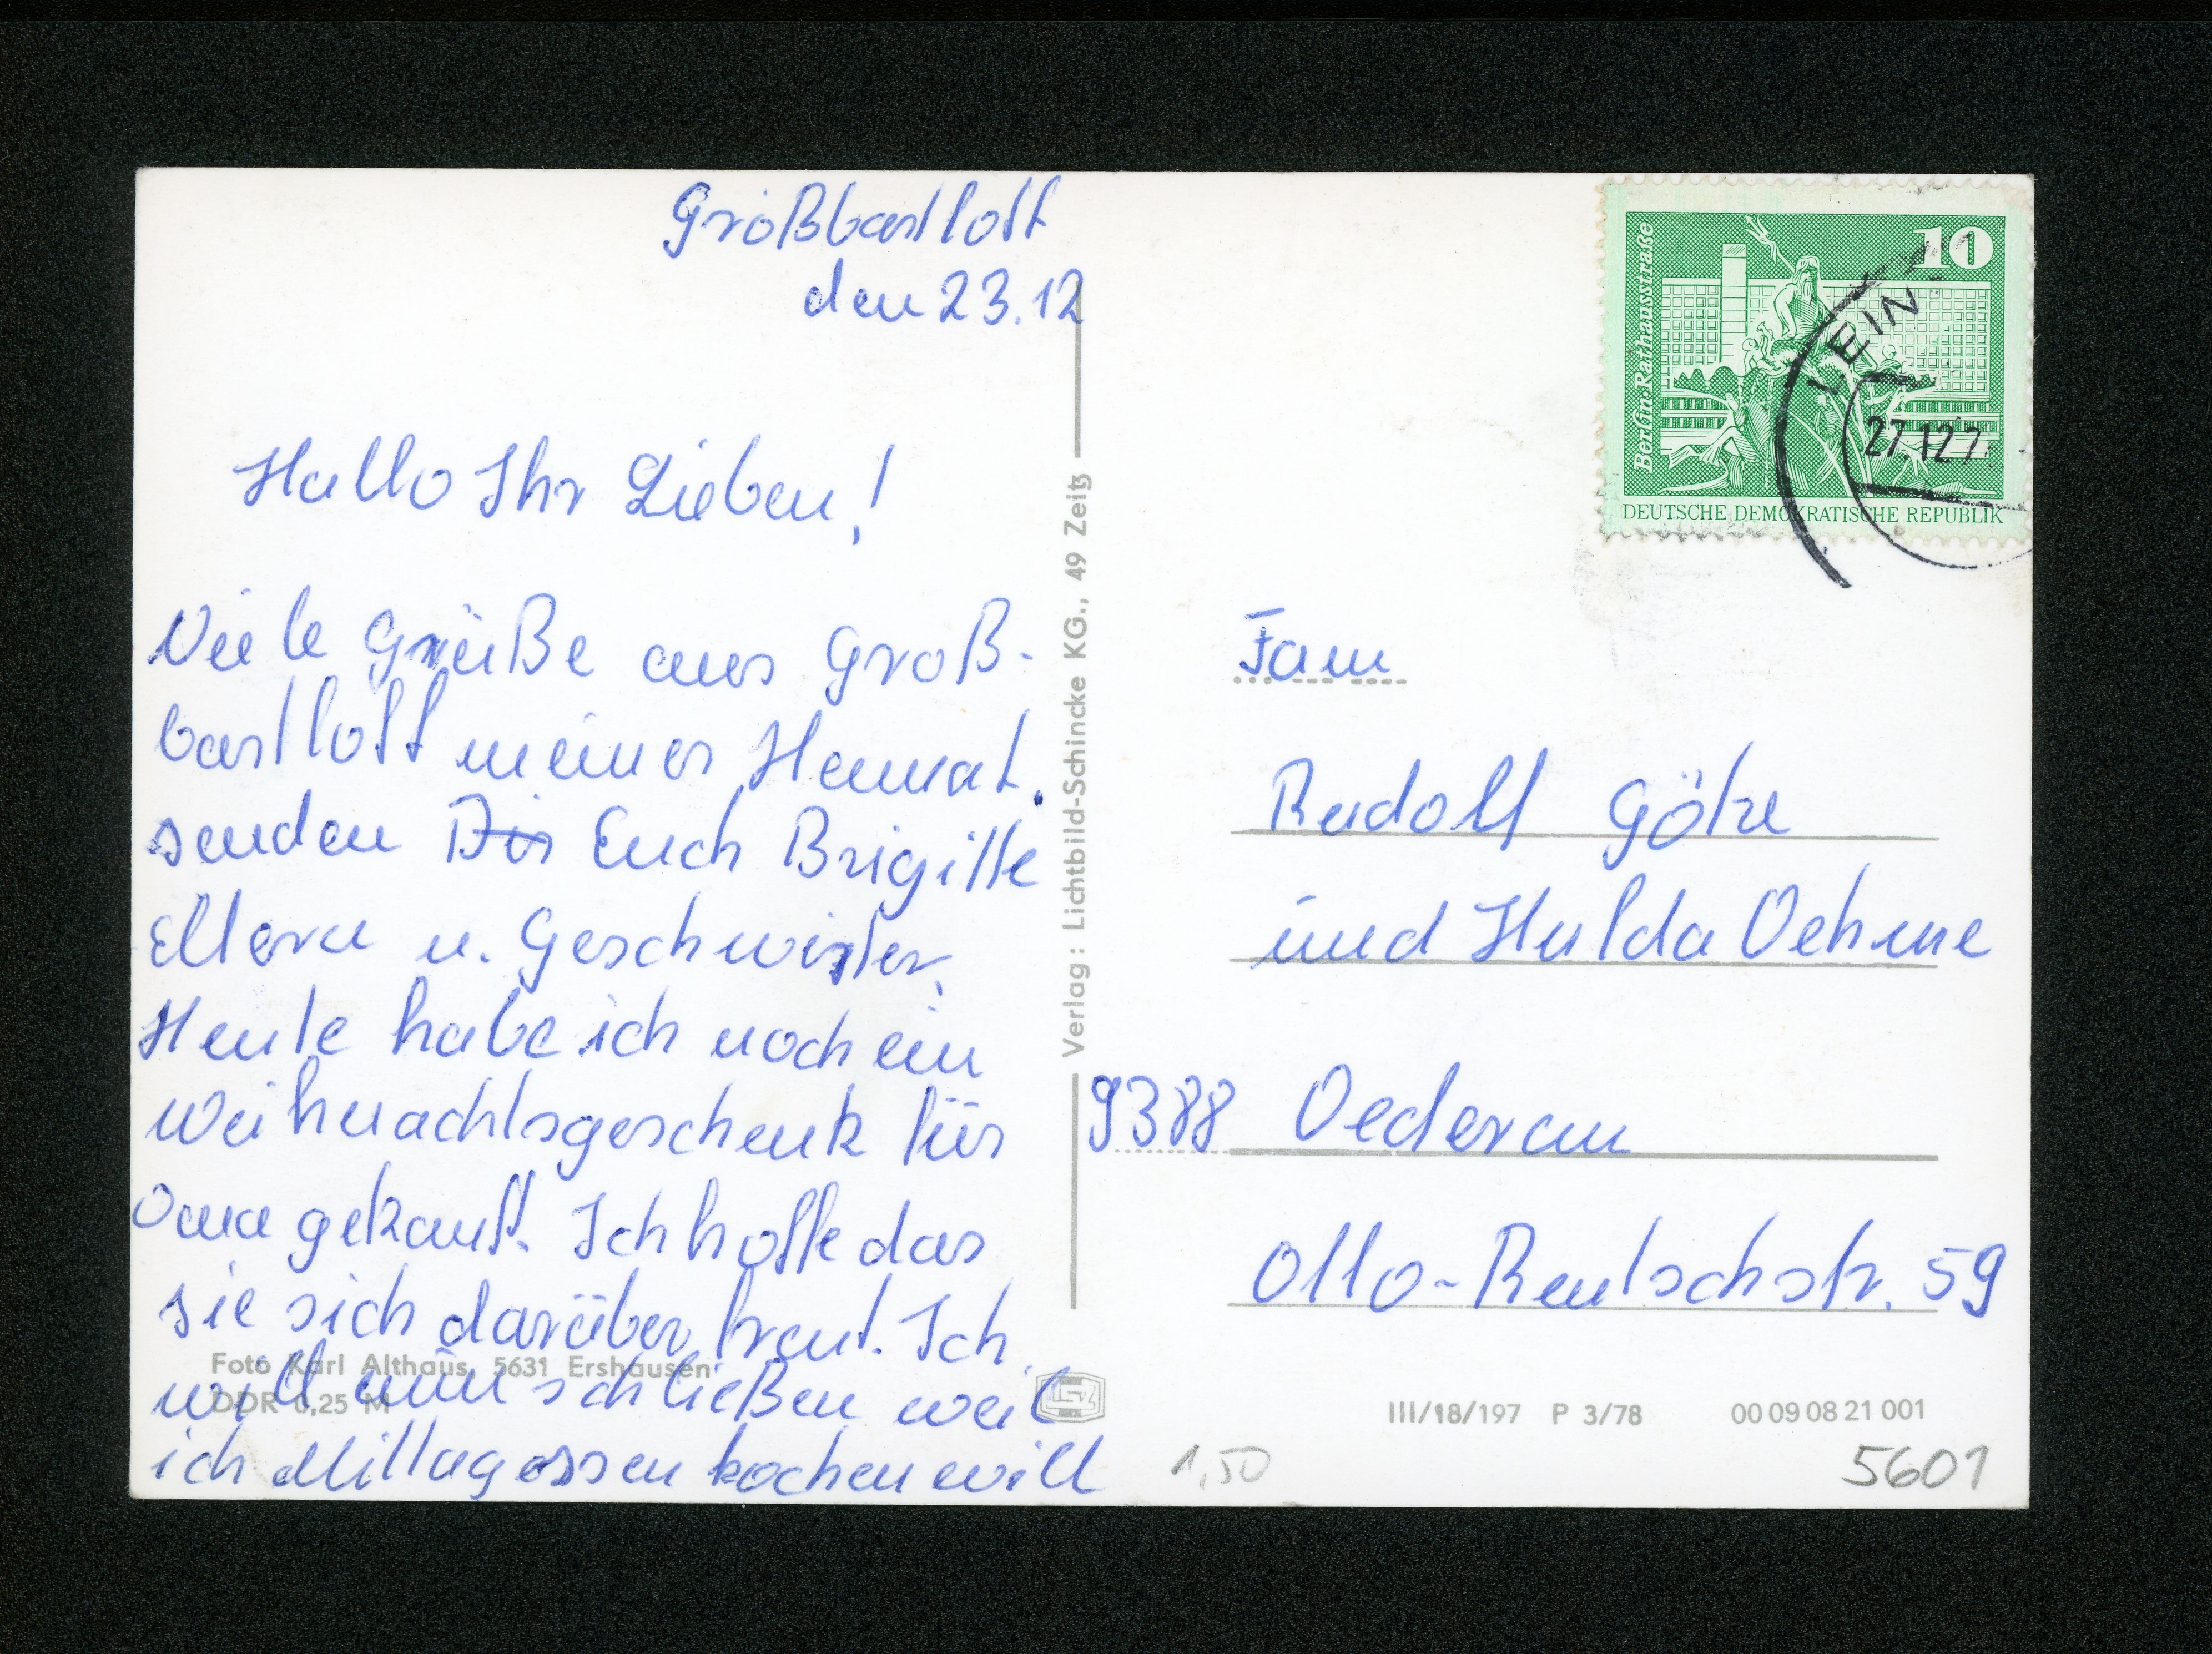 Großbartloff
den 23.12
Hallo Ihr Lieben,!
Viele Grüße aus Groß-
bartloff meiner Heimat.
senden Dir Euch Brigitte
Eltern u. Geschwister.
Heute habe ich noch ein
Weihnachtsgeschenk für
Oma gekauft. Ich hoffe das
sie sich darüber freut. Ich
will nun schließen weil
ich Mittagessen kochen will
Foto Karl Althaus, 5631 Ershausen
DDR 0,25 M
Verlag: Lichtbild-Schincke KG., 49 Zeitz
Berlin·Rathausstraße
10
DEUTSCHE DEMOKRATISCHE REPUBLIK
LEIN
27.12.7
Fam
Rudolf Götze
und Hulda Oehme
9388 Oederan
Otto-Rentschstr. 59
III/18/197 P 3/78 00 09 08 21 001
1,50
5601